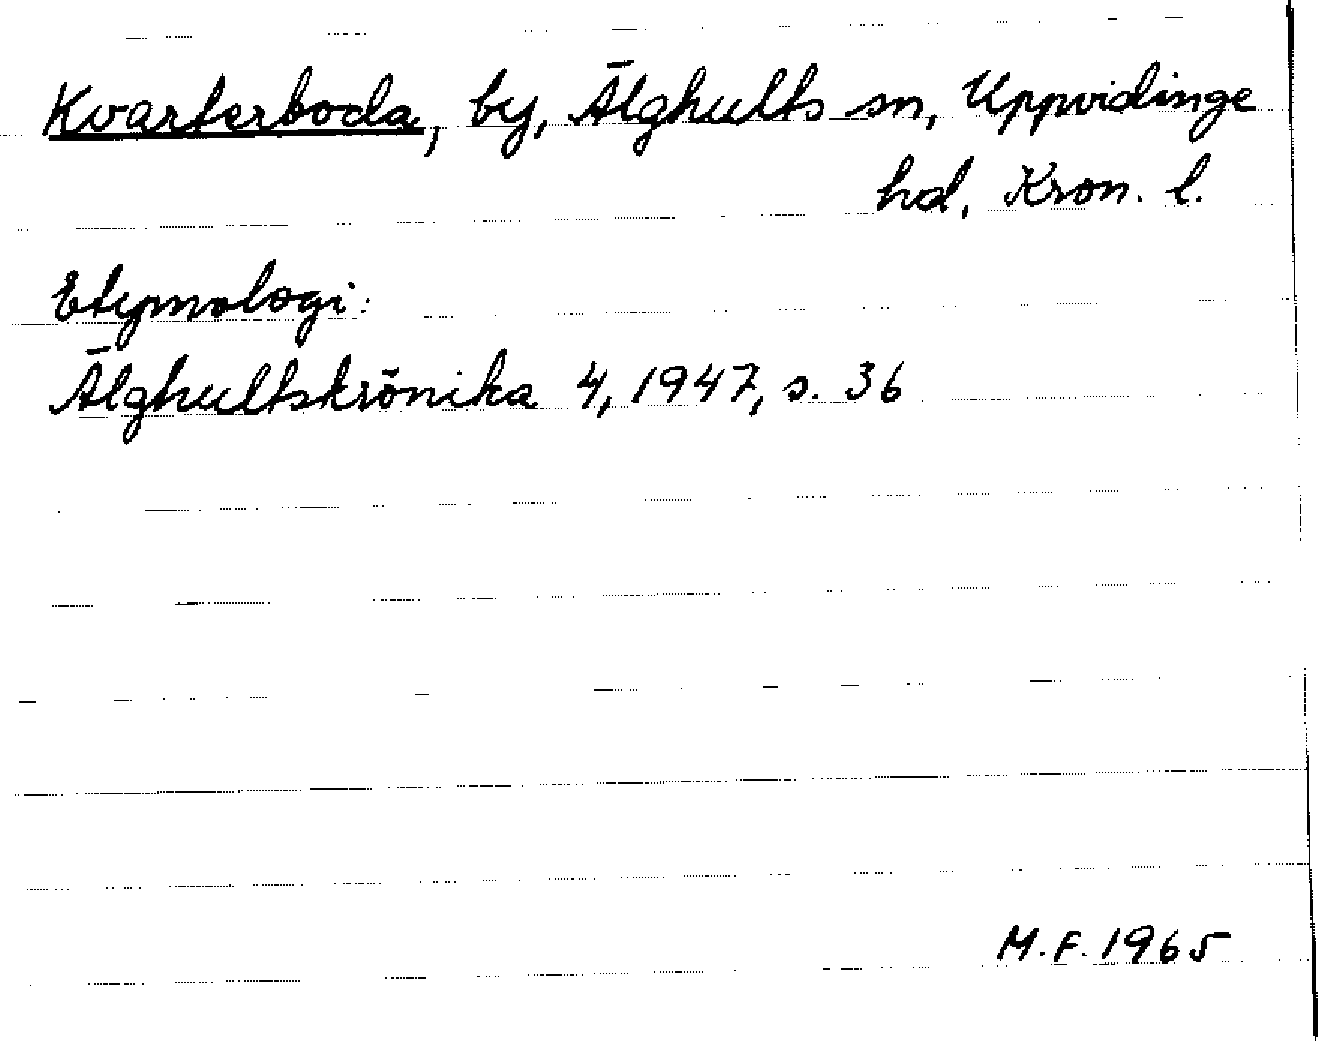 Kvarterboda, by, Älghults sn, Uppvidinge
hd, Kron. l.
Etymologi:
Älghultskrönika 4, 1947, s. 36
M.F. 1965